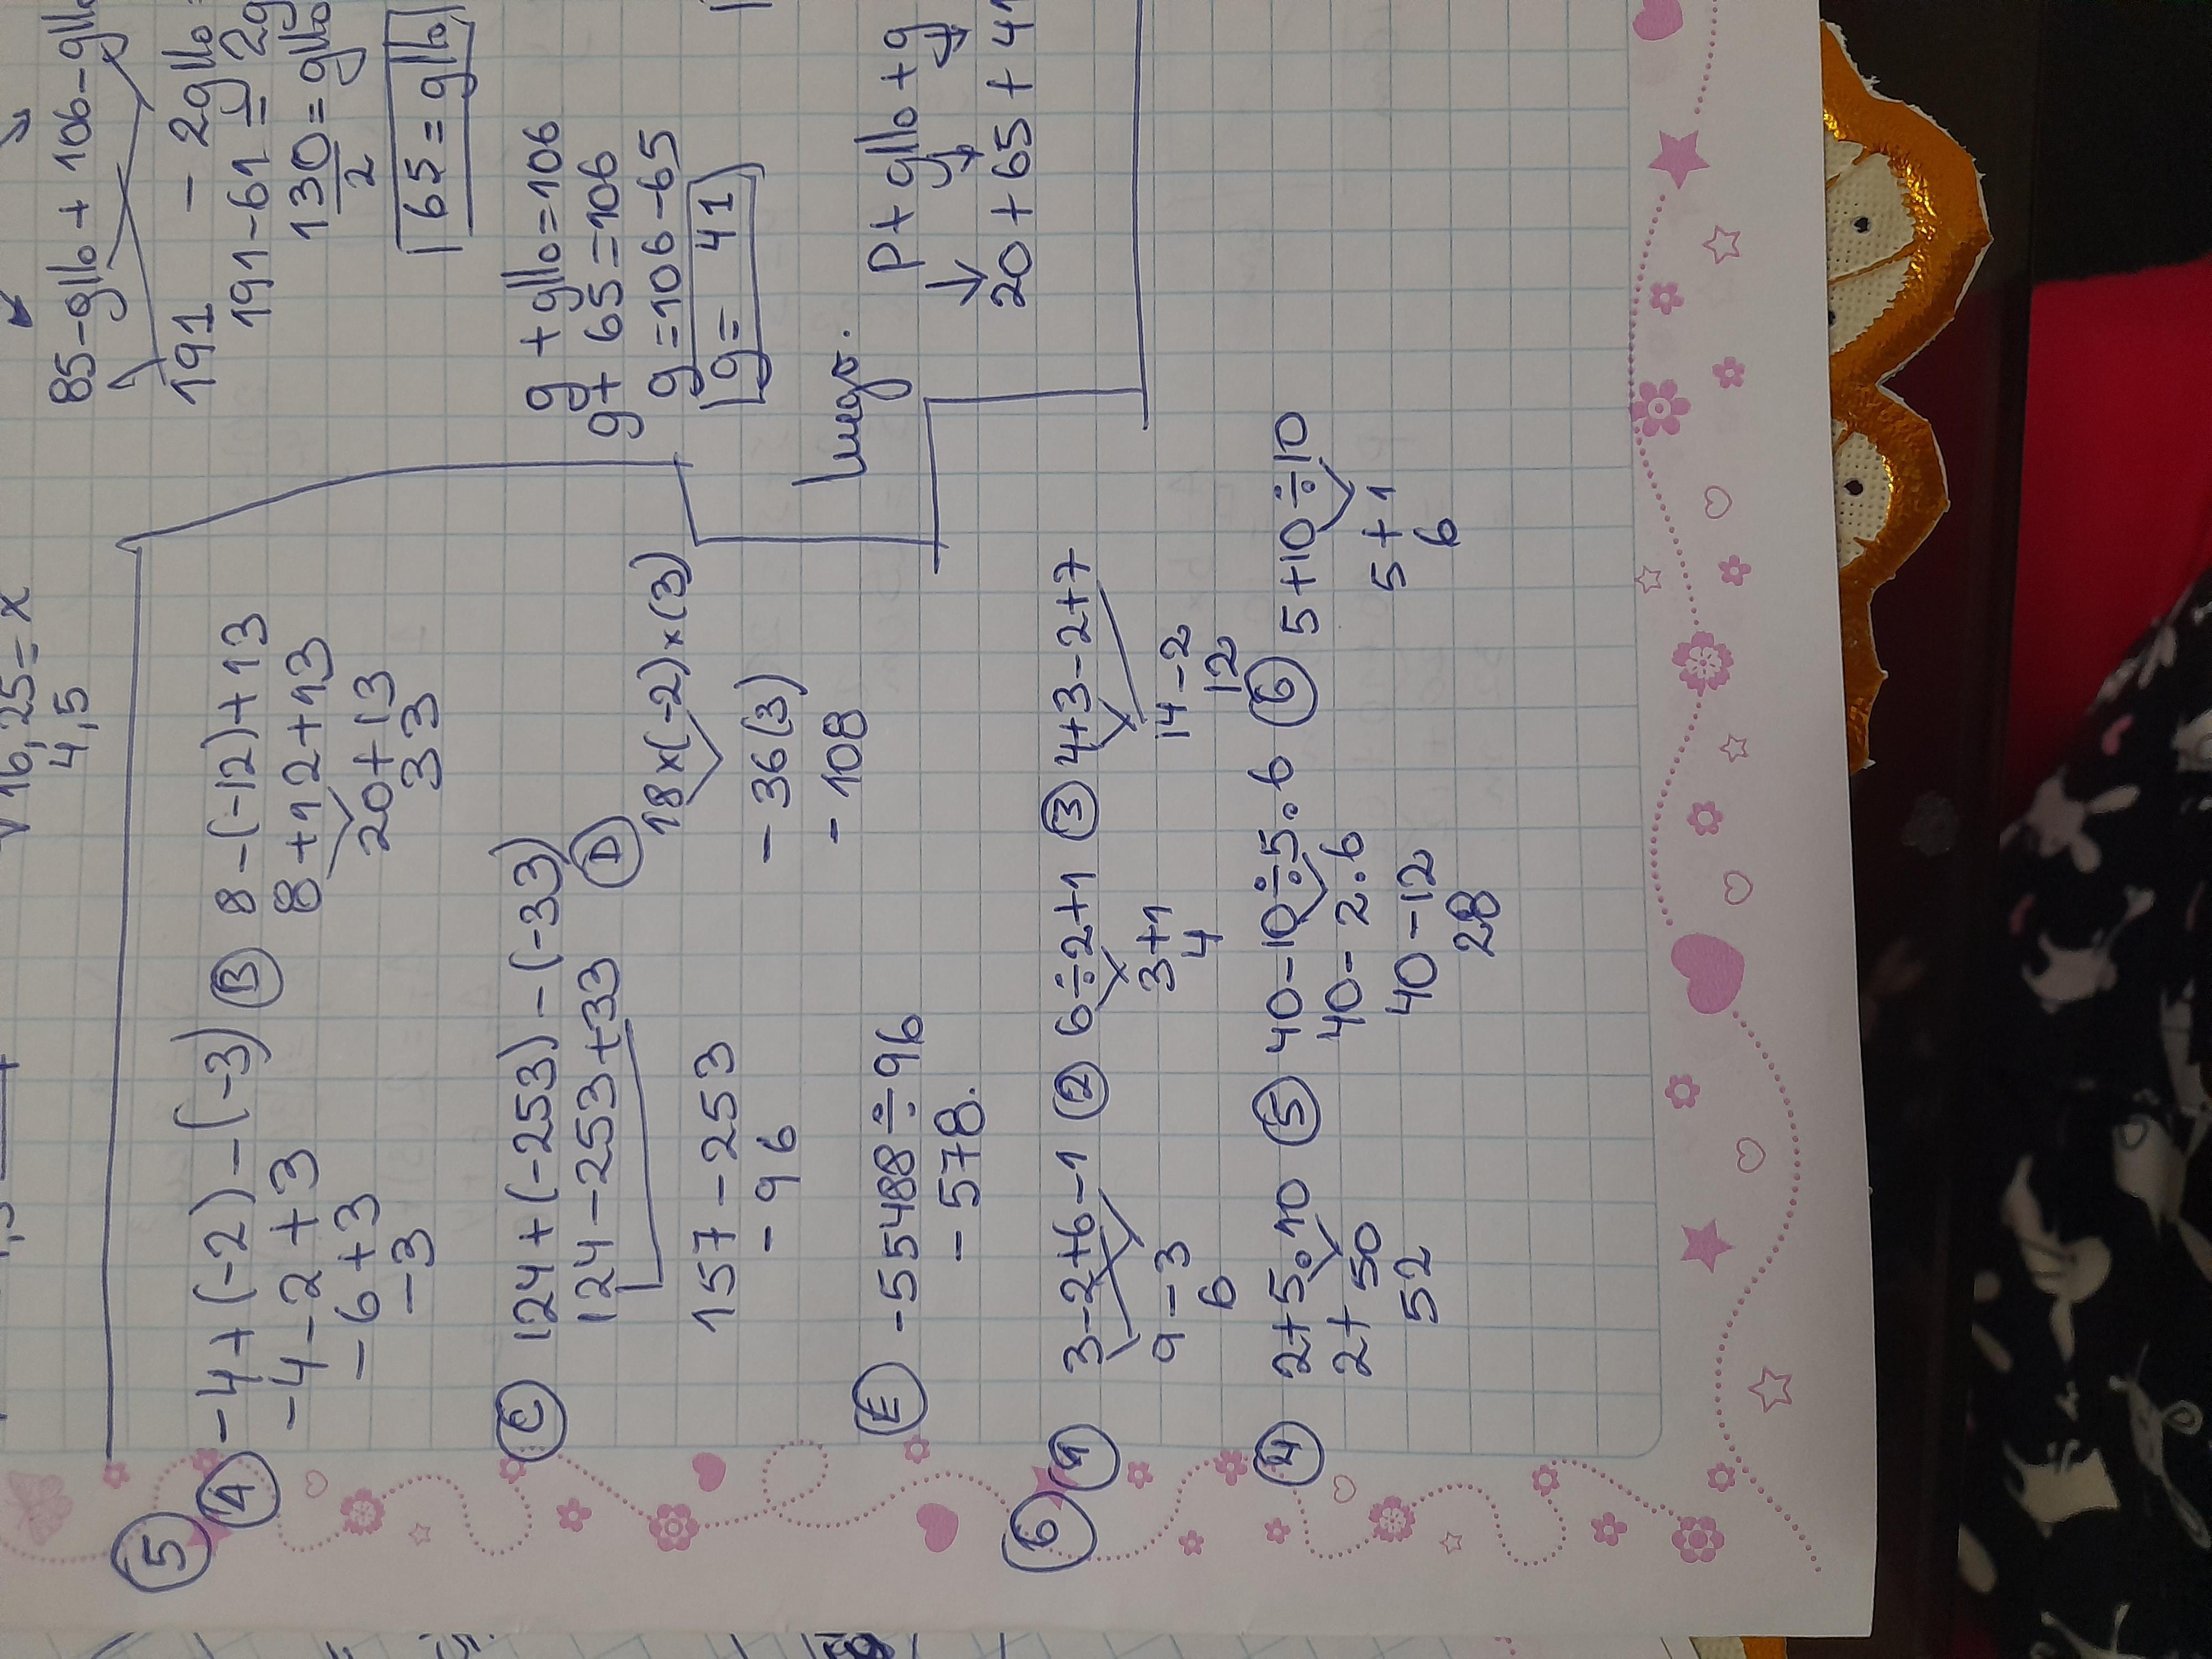 √16,25 = x
4,5
85-gllo + 106-gllo
191 - 2gllo =
191-61 = 29
130 = gllo
2
65 = gllo
g + gllo = 106
g + 65 = 106
g = 106-65
g = 41
luego.
p + gllo + g
20 + 65 + 41
5
A -4+(-2)-(-3)
-4-2+3
-6+3
-3
B 8-(-12)+13
8+12+13
20+13
33
C 124+(-253)-(-33)
124-253+33
157-253
-96
D 18x(-2)x(3)
-36(3)
-108
E -55488÷96
-578.
6
1 3-2+6-1
9-3
6
2 6÷2+1
3+1
4
3 4+3-2+7
14-2
12
4 2+5.10
2+50
52
5 40-10÷5.6
40-2.6
40-12
28
6 5+10÷10
5+1
6